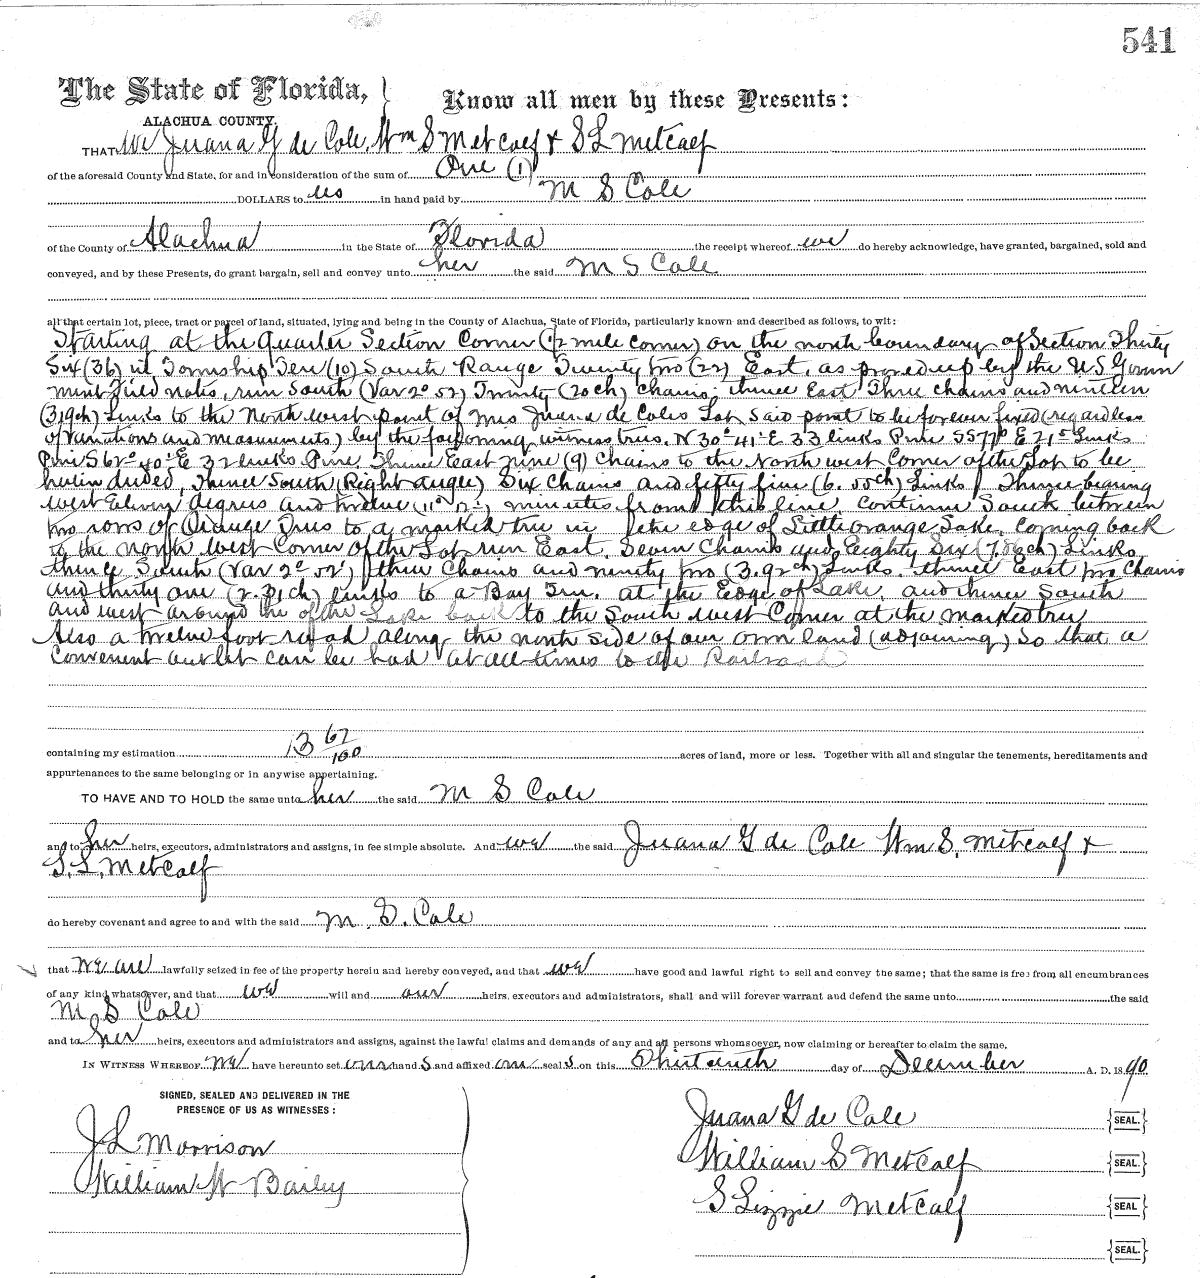 541
The State of Florida,
Know all men by these Presents:
ALACHUA COUNTY.
THAT We Juana G de Cole, Wm S Metcalf & S L Metcalf
of the aforesaid County and State, for and in consideration of the sum of One (1)
DOLLARS to us in hand paid by M S Cole
of the County of Alachua in the State of Florida the receipt whereof we do hereby acknowledge, have granted, bargained, sold and
conveyed, and by these Presents, do grant bargain, sell and convey unto her the said M S Cole
all that certain lot, piece, tract or parcel of land, situated, lying and being in the County of Alachua, State of Florida, particularly known and described as follows, to wit:
Starting at the Quarter Section Corner (1/2 mile corner) on the north boundary of Section Thirty
Six (36) in Township Ten (10) South Range Twenty two (22) East, as proved up by the US Govern
ment field notes, run South (Var 2° 52') Twenty (20ch) Chains; thence East Three chains and nineteen
(3.19ch) Links to the North west point of Mrs Juana de Coles Lot, Said point to be forever fixed (regardless
of variations and measurements) by the following witness trees. N 30° 41' E 33 links Pine S 57 E 21 Links
Pine S 62° 40' E 32 links Pine. Thence East nine (9) Chains to the North west Corner of the Lot to be
herein deeded, Thence South (Right angle) Six Chains and fifty five (6.55ch) Links Thence bearing
west Eleven degrees and twelve (11° 12') minutes from this line, continue South between
two rows of Orange Trees to a marked tree in the edge of Little Orange Lake. Coming back
to the north west Corner of the Lot run East. Seven Chains and Eighty Six (7.86ch) Links.
thence South (Var 2° 52') three Chains and ninety two (3.92ch) Links. thence East two Chains
and thirty one (2.31ch) links to a Bay Tree. at the Edge of Lake, and thence South
and west around the of the Lake back to the South west Corner at the marked tree
Also a twelve foot road along the north side of our own land (adjoining) So that a
Convenent outlet can be had at all times to the Railroad
containing my estimation 13 67/100 acres of land, more or less. Together with all and singular the tenements, hereditaments and
appurtenances to the same belonging or in anywise appertaining.
TO HAVE AND TO HOLD the same unto her the said M S Cole
and to her heirs, executors, administrators and assigns, in fee simple absolute. And we the said Juana G de Cole Wm S. Metcalf &
S. L. Metcalf
do hereby covenant and agree to and with the said M. S. Cole
that we are lawfully seized in fee of the property herein and hereby conveyed, and that we have good and lawful right to sell and convey the same; that the same is free from all encumbrances
of any kind whatsoever, and that we will and our heirs, executors and administrators, shall and will forever warrant and defend the same unto the said
M S Cole
and to her heirs, executors and administrators and assigns, against the lawful claims and demands of any and all persons whomsoever, now claiming or hereafter to claim the same.
IN WITNESS WHEREOF We have hereunto set our hand s and affixed our seal s on this Thirteenth day of December A. D. 1890
SIGNED, SEALED AND DELIVERED IN THE
PRESENCE OF US AS WITNESSES:
J L Morrison
William W Bailey
Juana G de Cole {SEAL.}
William S Metcalf {SEAL.}
S Lizzie Metcalf {SEAL}
{SEAL.}